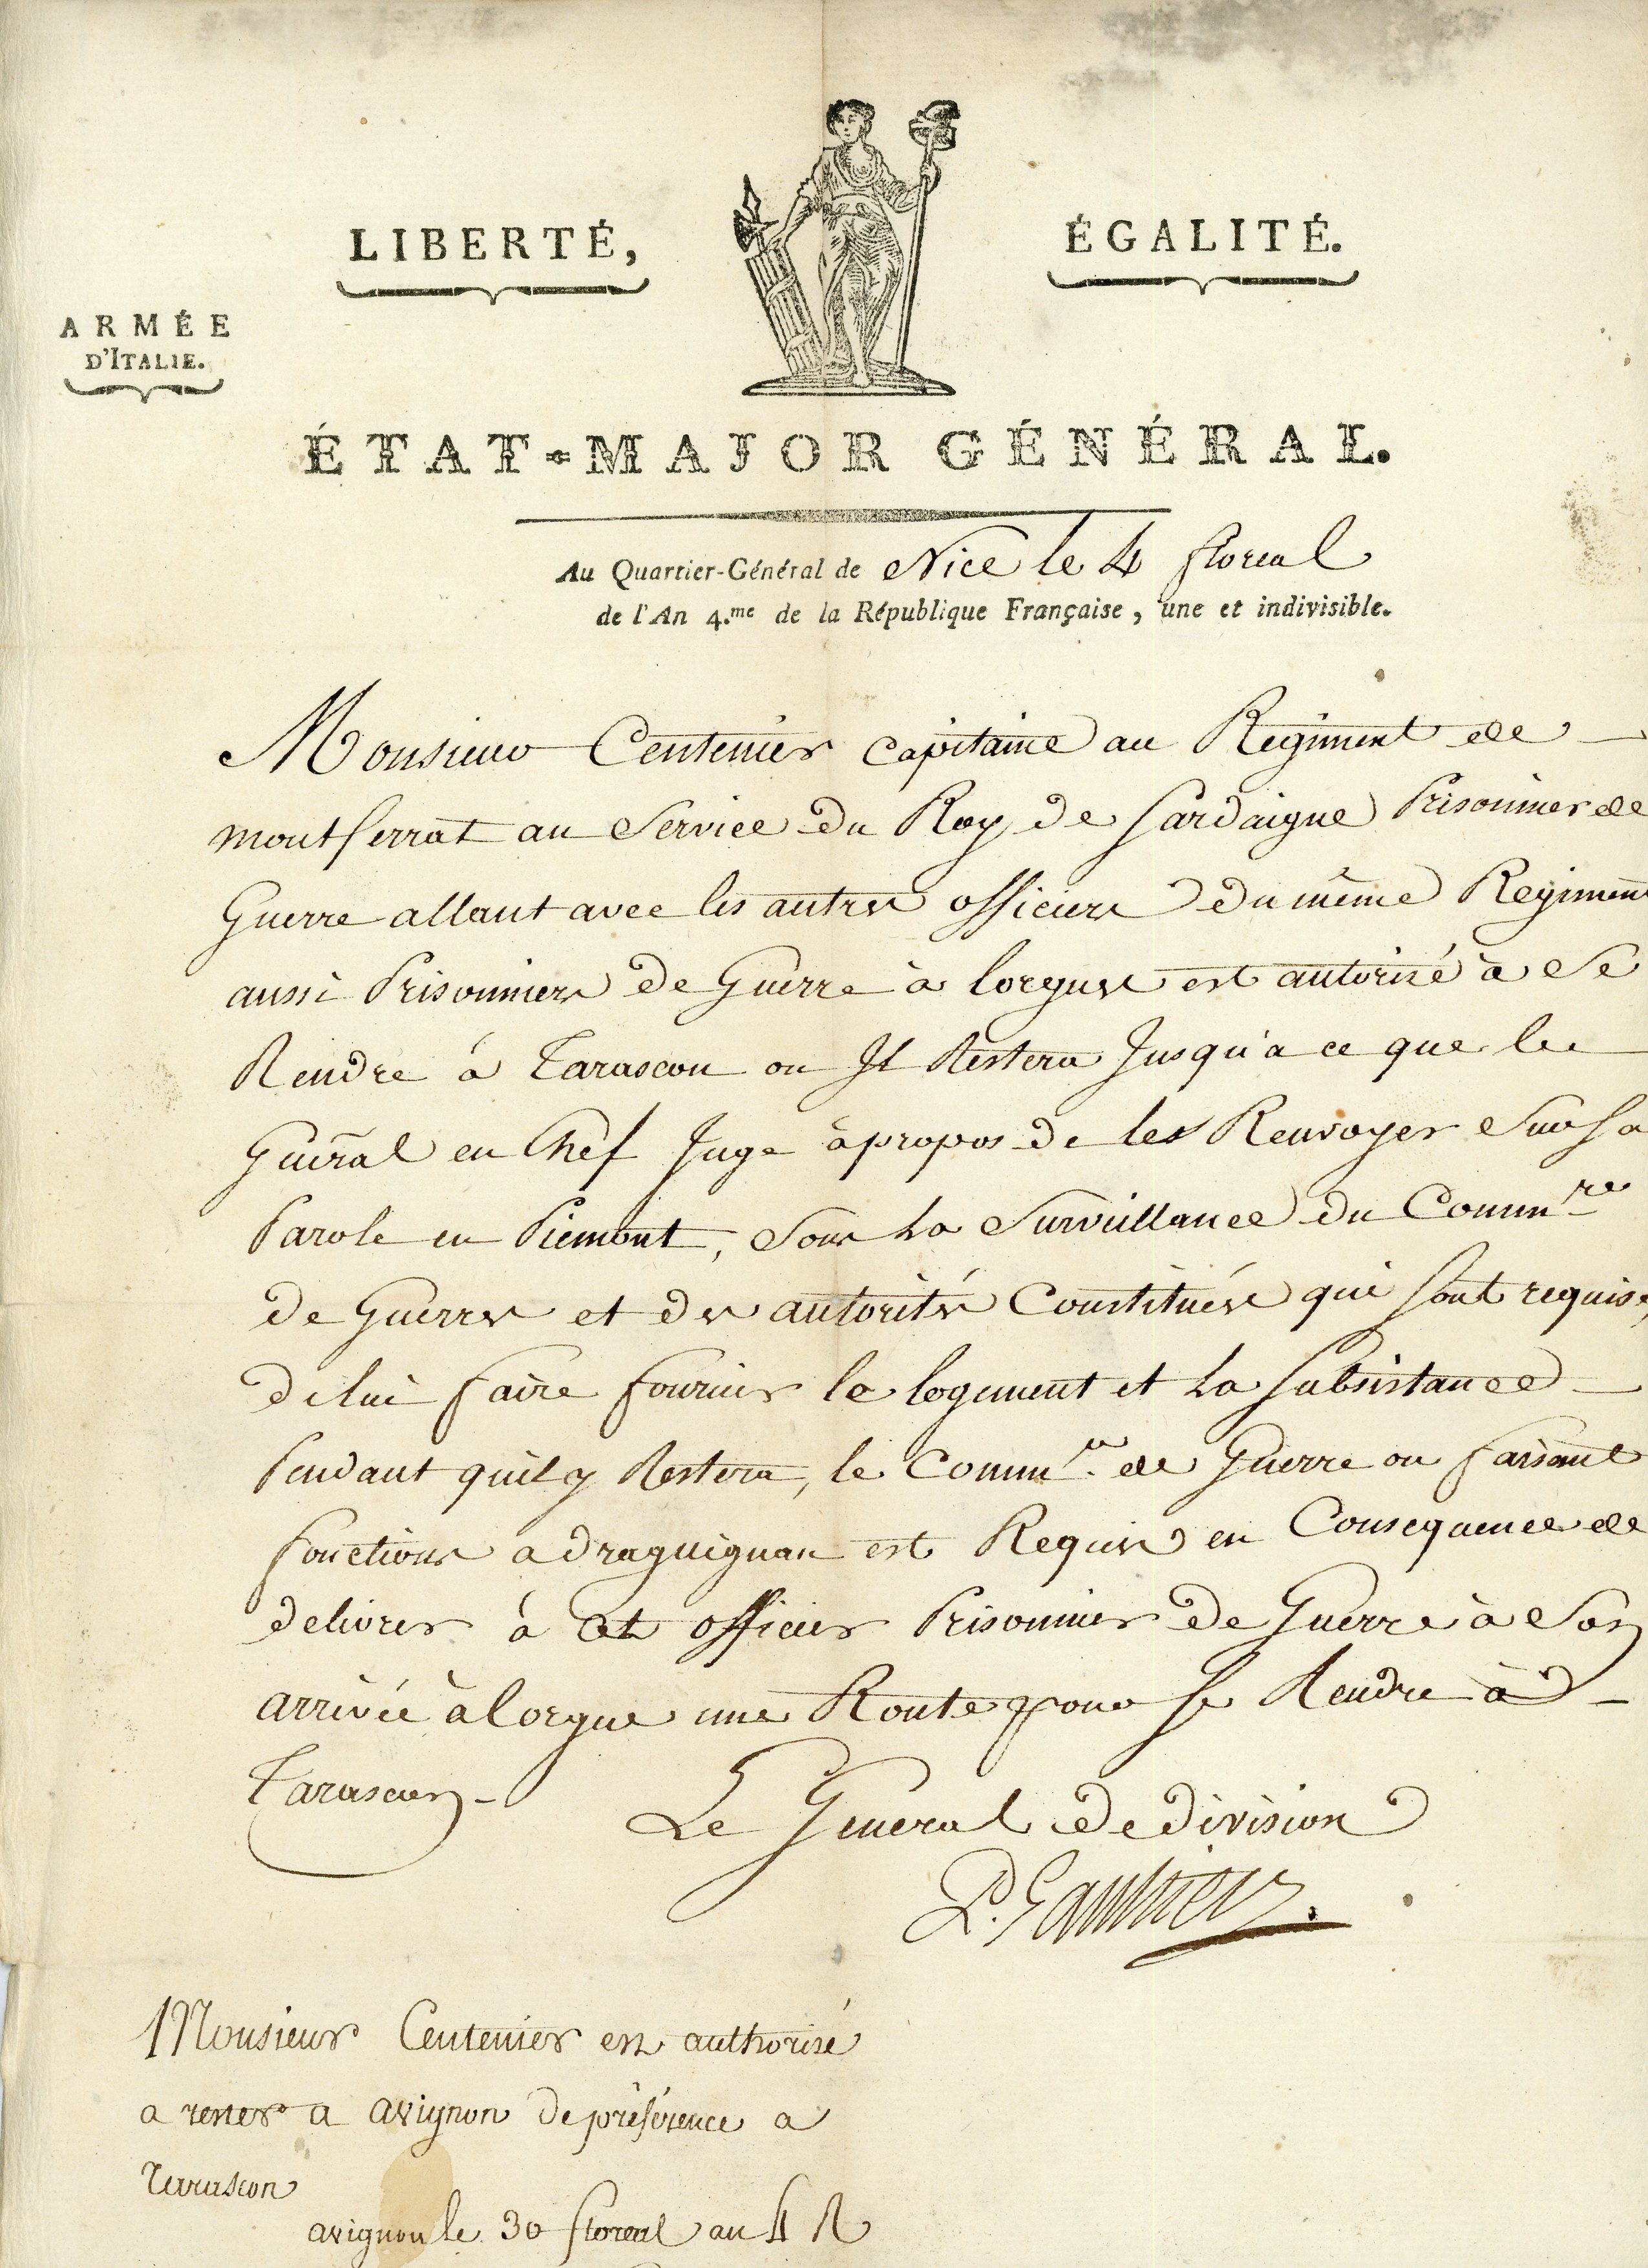 LIBERTÉ,
ÉGALITÉ.
ARMÉE
D'ITALIE.
ÉTAT-MAJOR GÉNÉRAL.
Au Quartier-Général de Nice le 4 floreal
de l'An 4.me de la République Française, une et indivisible.
Monsieur Centenier capitaine au Regiment de
montferrat au Service du Roy de Sardaigne Prisonnier de
Guerre allant avec les autres officiers du même Regiment
aussi Prisonniers de Guerre à lorgues est autorisé à Se
Rendre à Tarascon ou Il Restera Jusqu'a ce que le
Gnéral en Chef Juge à propos de les Renvoyer Sur Sa
Parole en Piemont, Sous La Surveillance du Commre
de Guerres et des autorités Constituées qui Sont requises
de lui faire fournir le logement et La Subsistance
Pendant quil y Restera, le Commre de Guerre ou faisant
fonctions a draguignan est Requis en Consequence de
delivrer à Cet officier Prisonnier de Guerre à Son
arrivée à lorgue une Route pour Se Rendre à
Tarascon
Le General de division
P. Gaultier
Monsieur Centenier est authorisé
a rester a avignon de préférence a
Tarascon
avignon le 30 floreal an 4 R